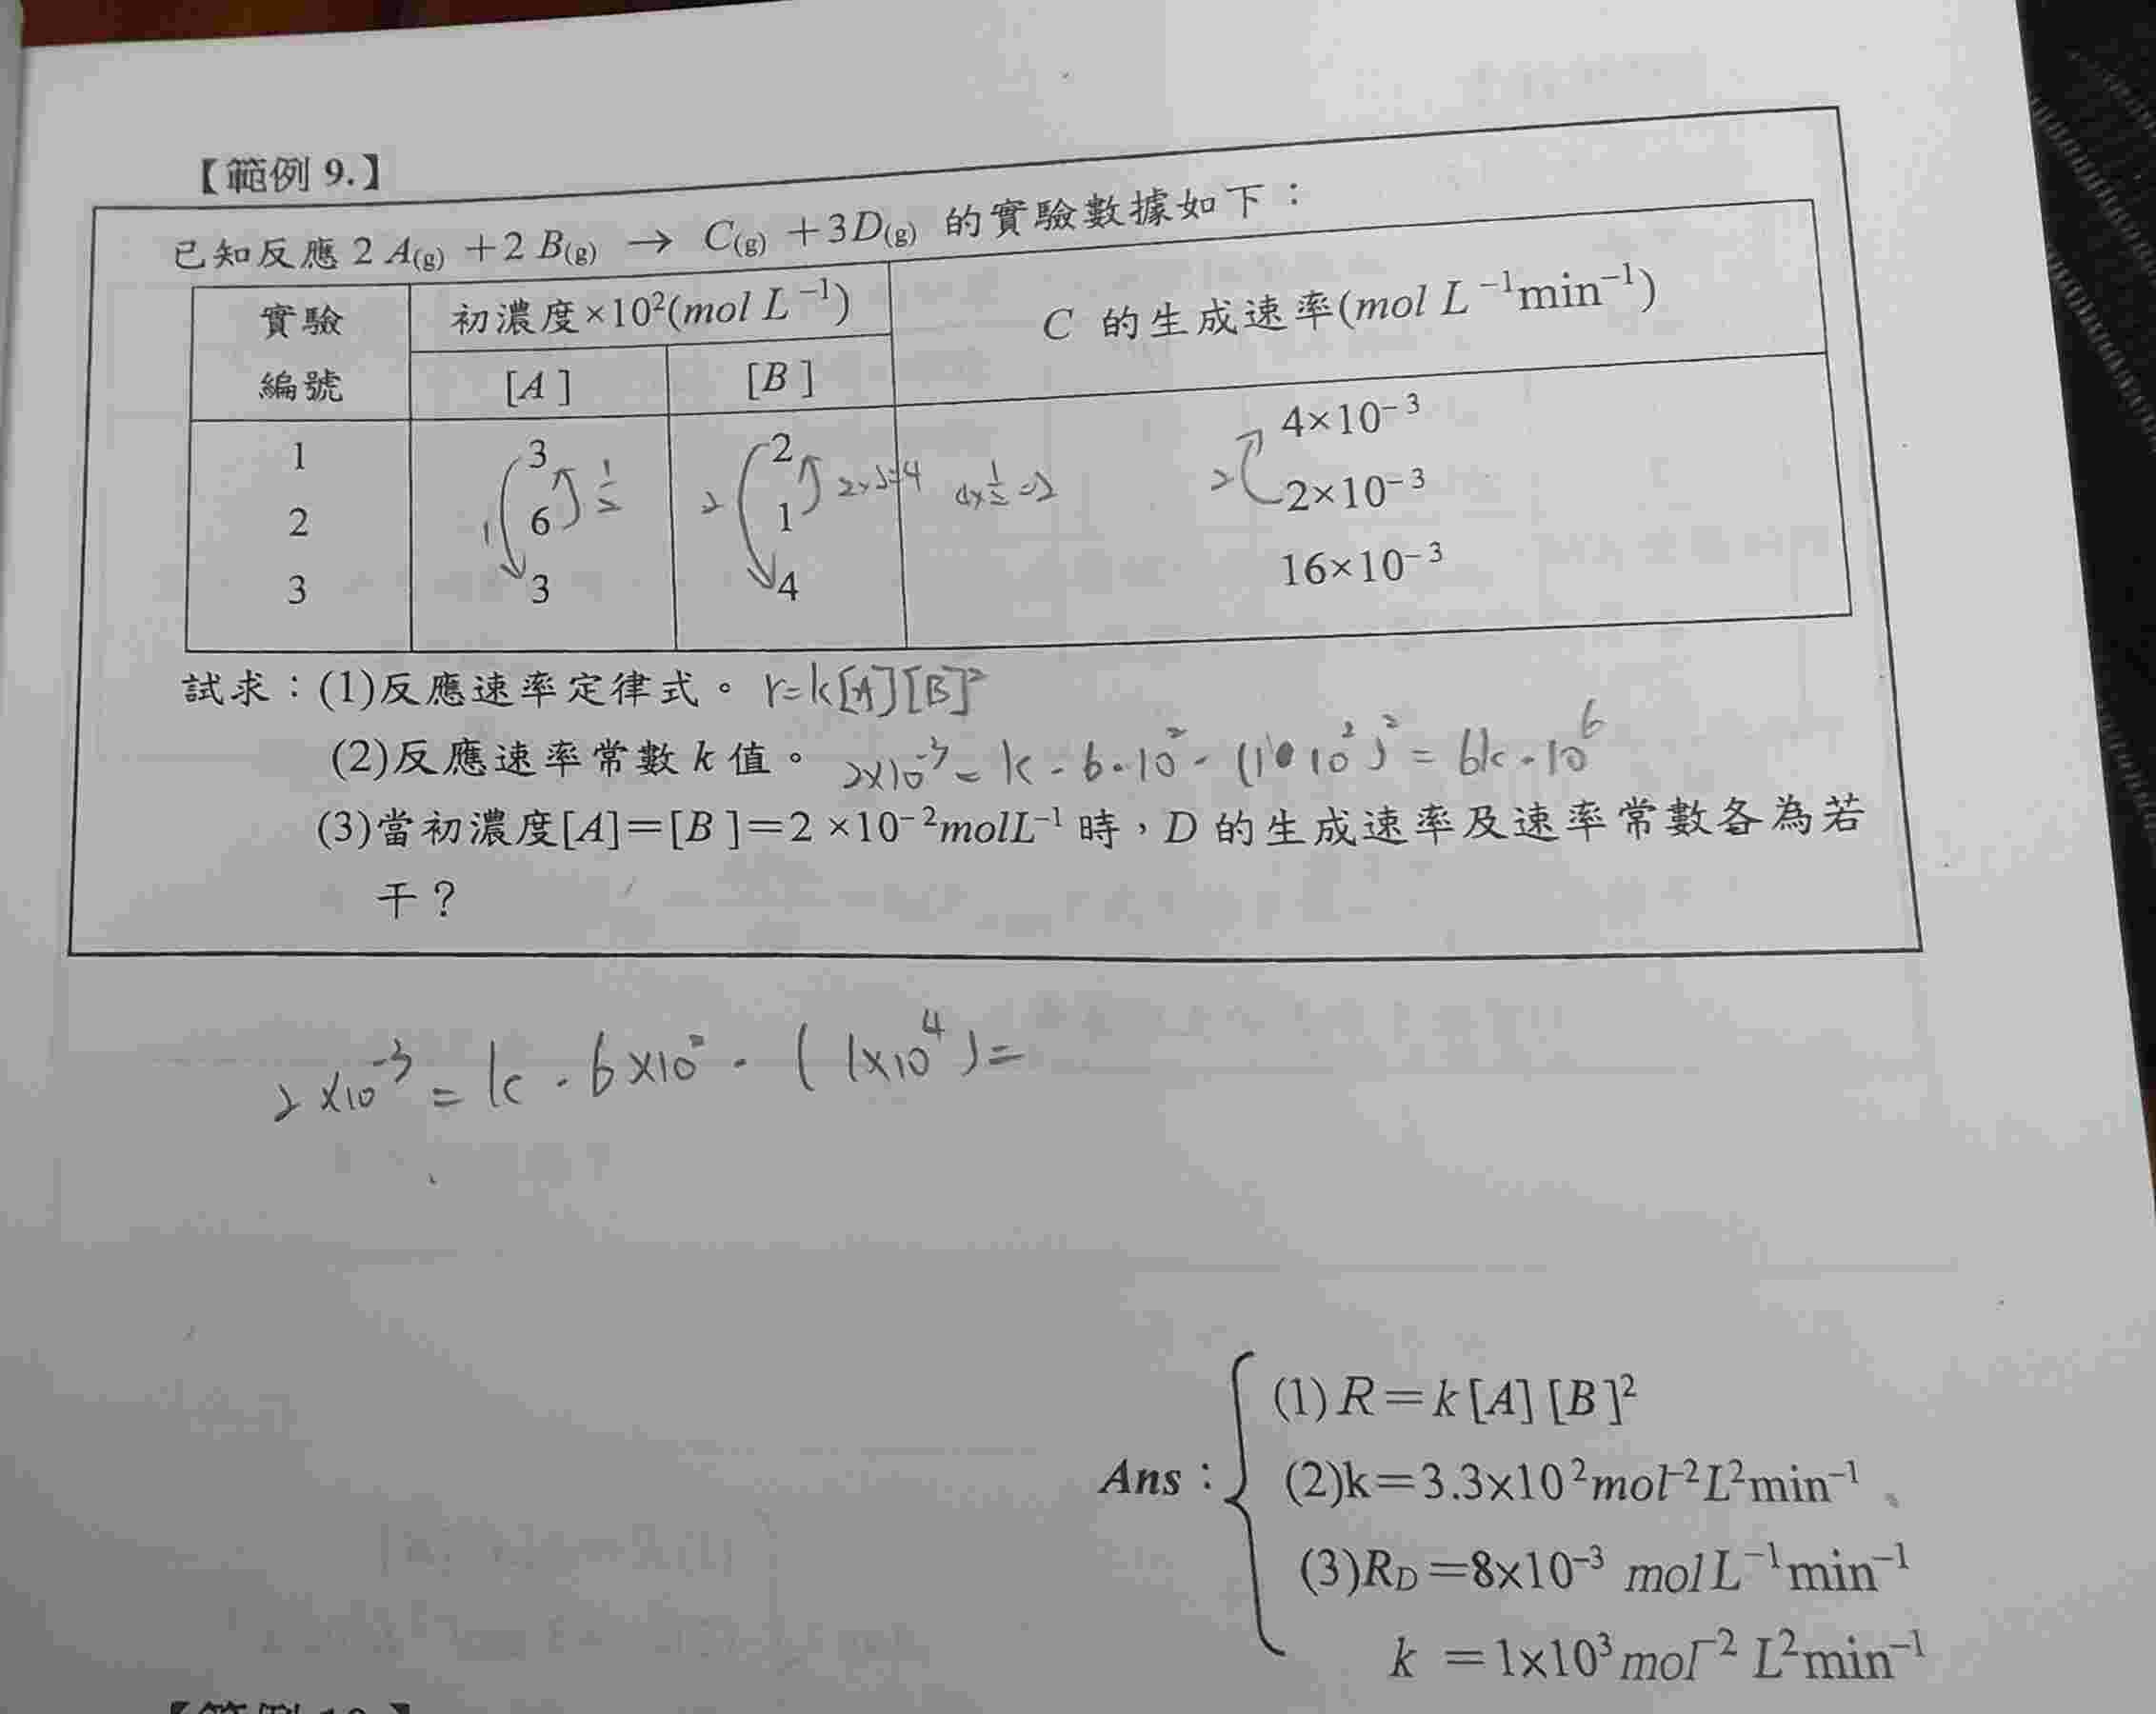 【範例 9.】
已知反應 2 A(g) +2 B(g) → C(g) +3D(g) 的實驗數據如下：
實驗編號 初濃度×10²(mol L⁻¹) C 的生成速率(mol L⁻¹min⁻¹)
[A] [B]
1 3 2 4×10⁻³
2 6 1 2×10⁻³
3 3 4 16×10⁻³
1 1/2 2 2×2=4 4×1/2=2 2
試求：(1)反應速率定律式。 r=k[A][B]²
(2)反應速率常數 k 值。 2×10⁻³=k·6·10²·(1·10²)²=6k·10⁶
(3)當初濃度[A]＝[B]＝2 ×10⁻²molL⁻¹ 時，D 的生成速率及速率常數各為若
干？
2×10⁻³=k·6×10²·(1×10⁴)=
Ans：
(1)R＝k[A][B]²
(2)k＝3.3×10²mol⁻²L²min⁻¹
(3)R_D＝8×10⁻³ mol L⁻¹min⁻¹
k ＝1×10³mol⁻² L²min⁻¹